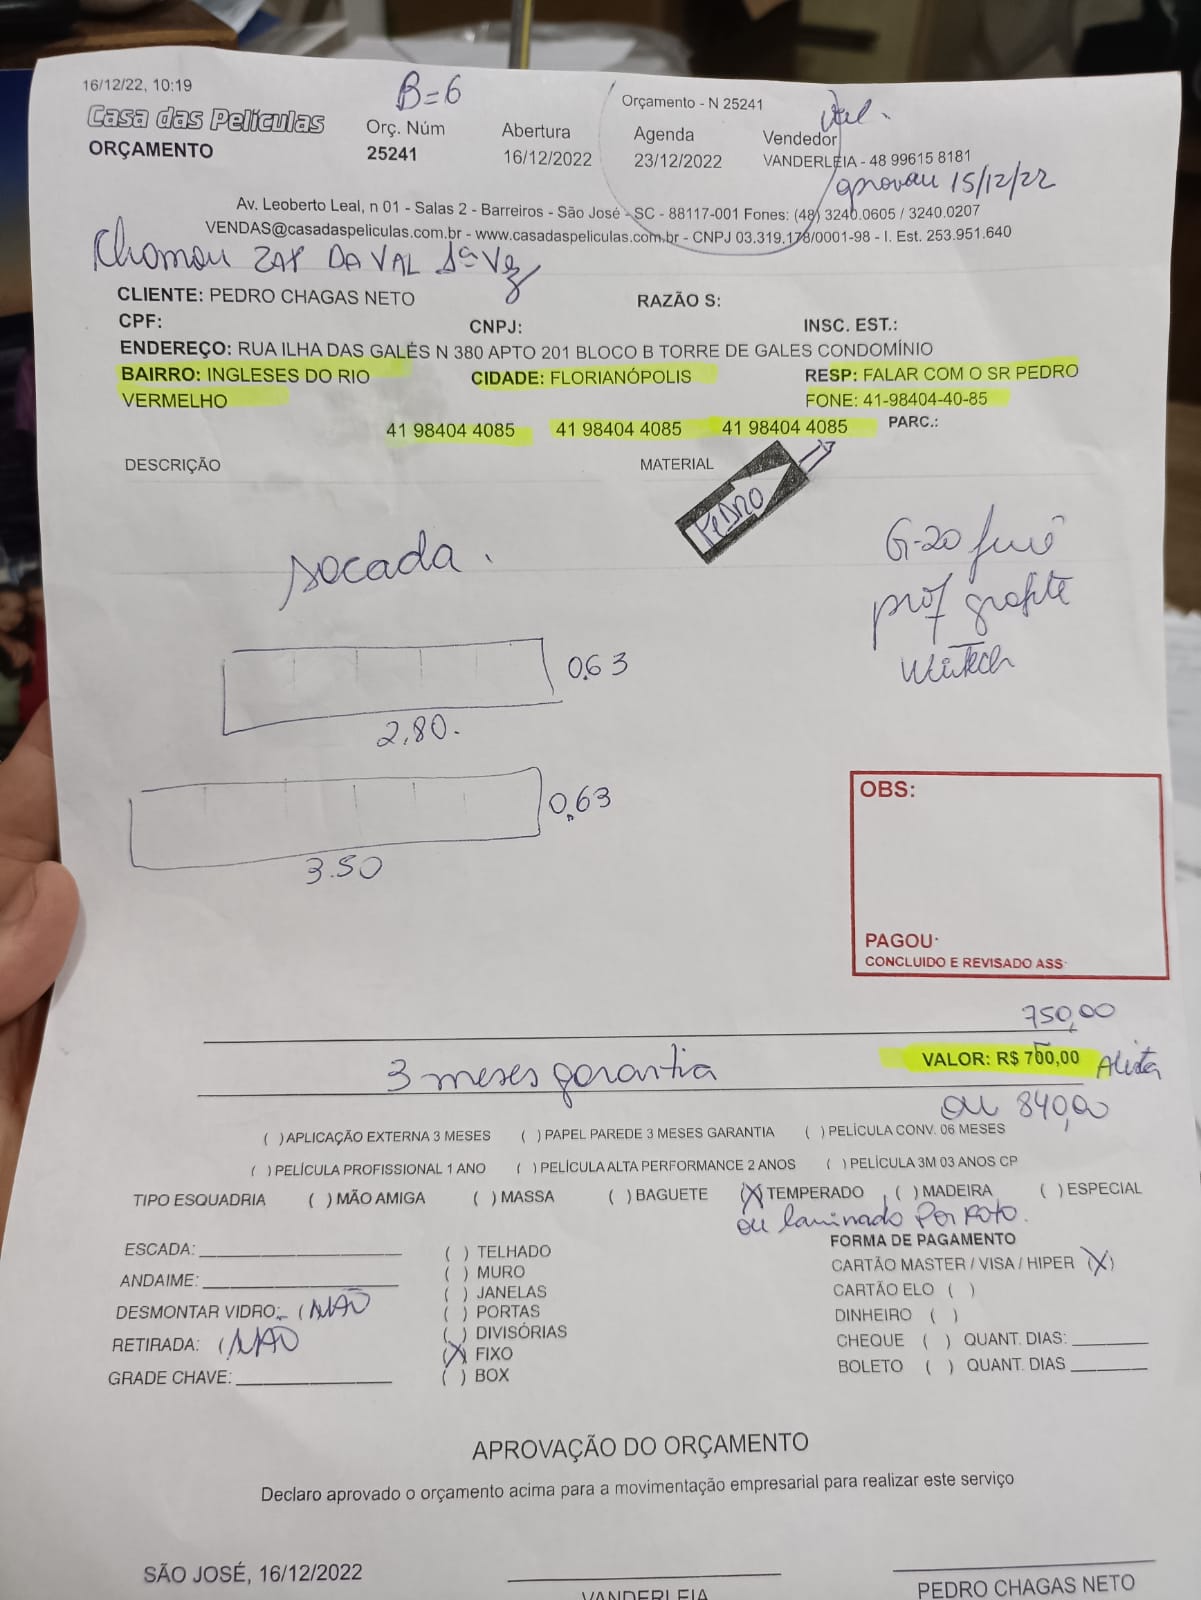 16/12/22, 10:19
B=6
Orçamento - N 25241
Val.
Casa das Películas
Orç. Núm
Abertura
Agenda
Vendedor
ORÇAMENTO
25241
16/12/2022
23/12/2022
VANDERLEIA - 48 99615 8181
aprovou 15/12/22
Av. Leoberto Leal, n 01 - Salas 2 - Barreiros - São José - SC - 88117-001 Fones: (48) 3240.0605 / 3240.0207
VENDAS@casadaspeliculas.com.br - www.casadaspeliculas.com.br - CNPJ 03.319.178/0001-98 - I. Est. 253.951.640
Chamou ZAP DA VAL 1ª Vez
CLIENTE: PEDRO CHAGAS NETO
RAZÃO S:
CPF:
CNPJ:
INSC. EST.:
ENDEREÇO: RUA ILHA DAS GALÉS N 380 APTO 201 BLOCO B TORRE DE GALES CONDOMÍNIO
BAIRRO: INGLESES DO RIO VERMELHO
CIDADE: FLORIANÓPOLIS
RESP: FALAR COM O SR PEDRO
FONE: 41-98404-40-85
41 98404 4085 41 98404 4085 41 98404 4085 PARC.:
DESCRIÇÃO
MATERIAL
PEDRO
sacada.
G-20 fumê
prof grafite
Wintech
0,63
2,80.
0,63
3.50
OBS:
PAGOU:
CONCLUIDO E REVISADO ASS:
750,00
3 meses garantia
VALOR: R$ 700,00
ou 840,00
( ) APLICAÇÃO EXTERNA 3 MESES ( ) PAPEL PAREDE 3 MESES GARANTIA ( ) PELÍCULA CONV. 06 MESES
( ) PELÍCULA PROFISSIONAL 1 ANO ( ) PELÍCULA ALTA PERFORMANCE 2 ANOS ( ) PELÍCULA 3M 03 ANOS CP
TIPO ESQUADRIA ( ) MÃO AMIGA ( ) MASSA ( ) BAGUETE (X) TEMPERADO ( ) MADEIRA ( ) ESPECIAL
ou laminado Por Foto.
ESCADA:
ANDAIME:
DESMONTAR VIDRO: ( NÃO
RETIRADA: ( NÃO
GRADE CHAVE:
( ) TELHADO
( ) MURO
( ) JANELAS
( ) PORTAS
( ) DIVISÓRIAS
(X) FIXO
( ) BOX
FORMA DE PAGAMENTO
CARTÃO MASTER / VISA / HIPER (X)
CARTÃO ELO ( )
DINHEIRO ( )
CHEQUE ( ) QUANT. DIAS:
BOLETO ( ) QUANT. DIAS
APROVAÇÃO DO ORÇAMENTO
Declaro aprovado o orçamento acima para a movimentação empresarial para realizar este serviço
SÃO JOSÉ, 16/12/2022
VANDERLEIA
PEDRO CHAGAS NETO